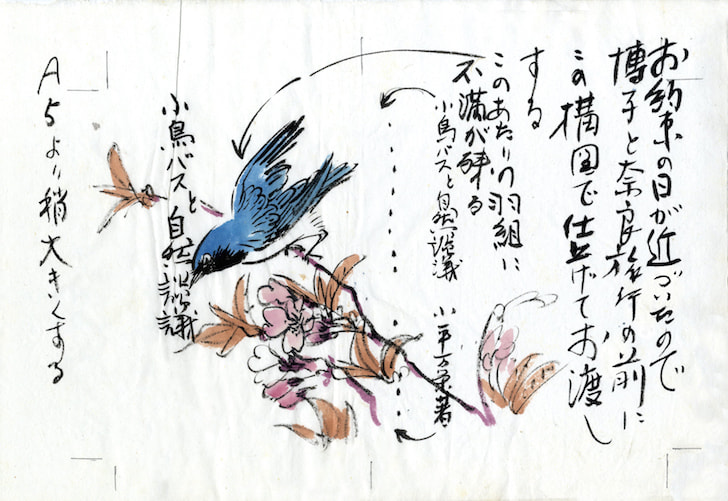 お約束の日が近づいたので
博子と奈良旅行の前に
この構図で仕上げてお渡し
する
このあたりの羽組に
不満が残る
小鳥バスと自然談議 小平万栄著
小鳥バスと自然談議
A5より稍大きくする